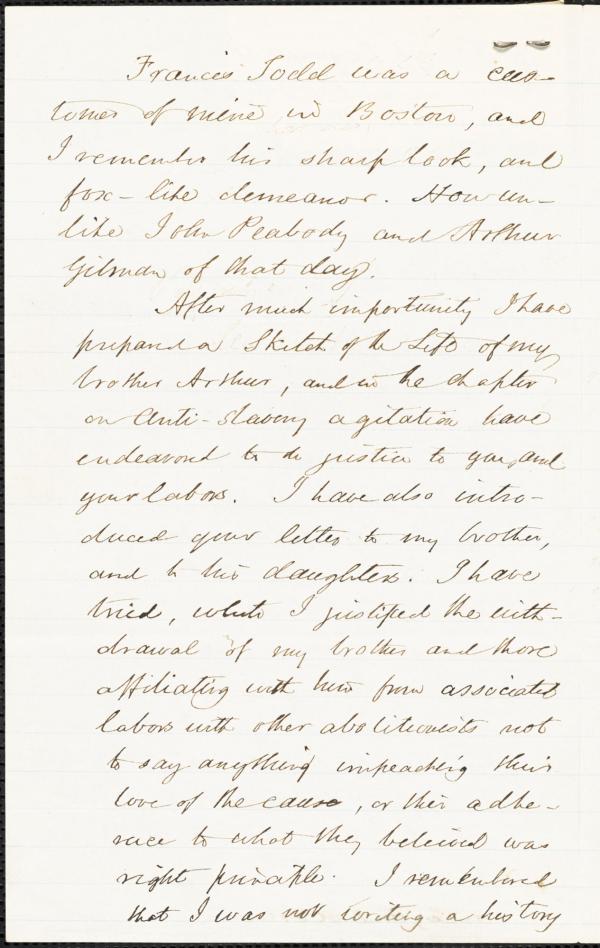 Francis Todd was a cus-
tomer of mine in Boston, and
I remember his sharp look, and
fox-like demeanor. How un-
like John Peabody and Arthur
Gilman of that day.
After much importunity I have
prepared a Sketch of the Life of my
brother Arthur, and in the chapter
on Anti-slavery agitation have
endeavored to do justice to you, and
your labors. I have also intro-
duced your letter to my brother,
and to his daughter. I have
tried, while I justified the with-
drawal of my brother and those
affiliating with him from associated
labors with other abolitionists not
to say anything impeaching their
love of the cause, or their adhe-
rence to what they believed was
right principle. I remembered
that I was not writing a history